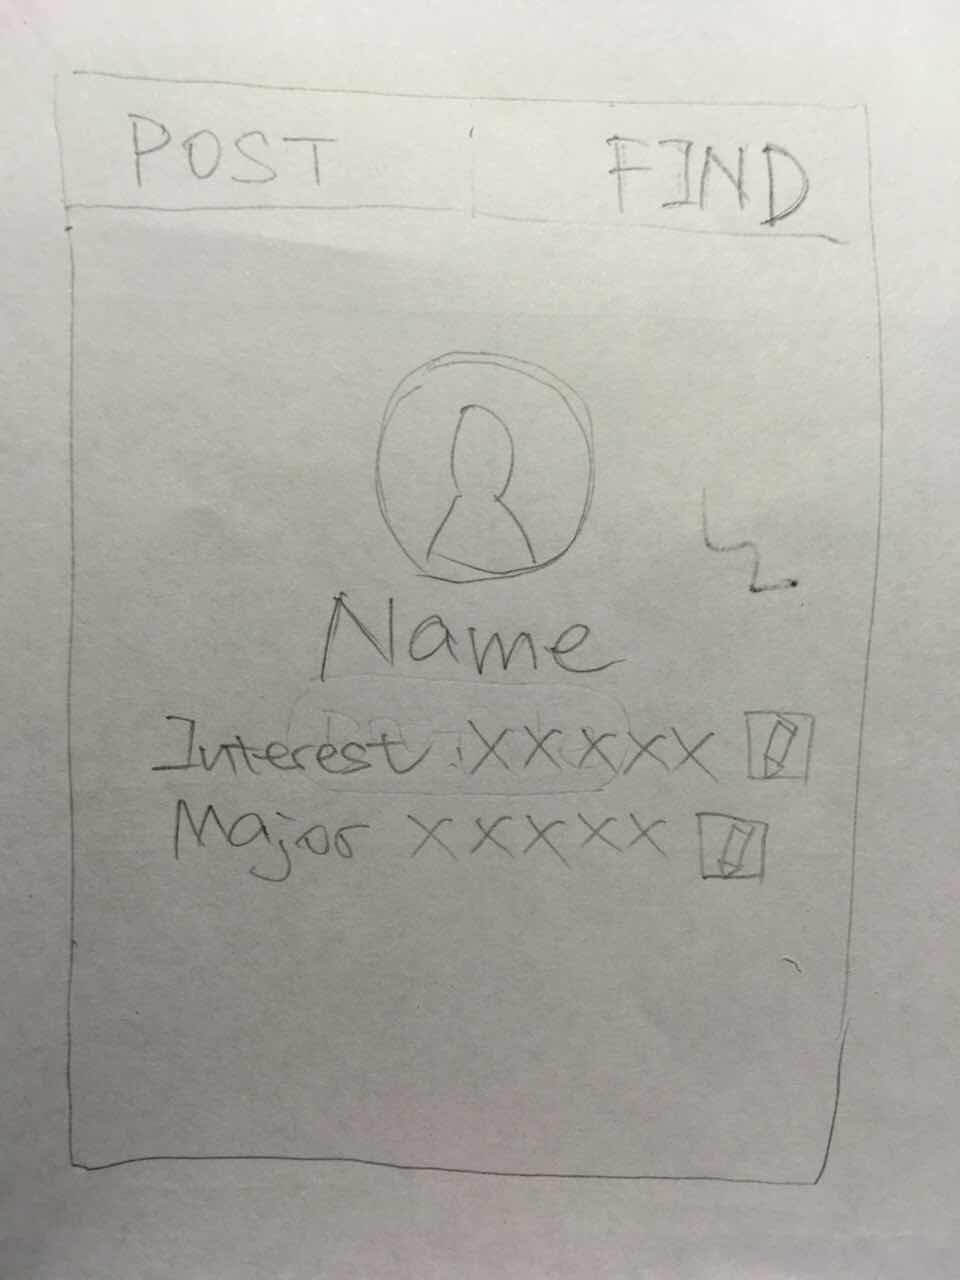 POST FIND
Name
Interest : XXXXX
Major XXXXX